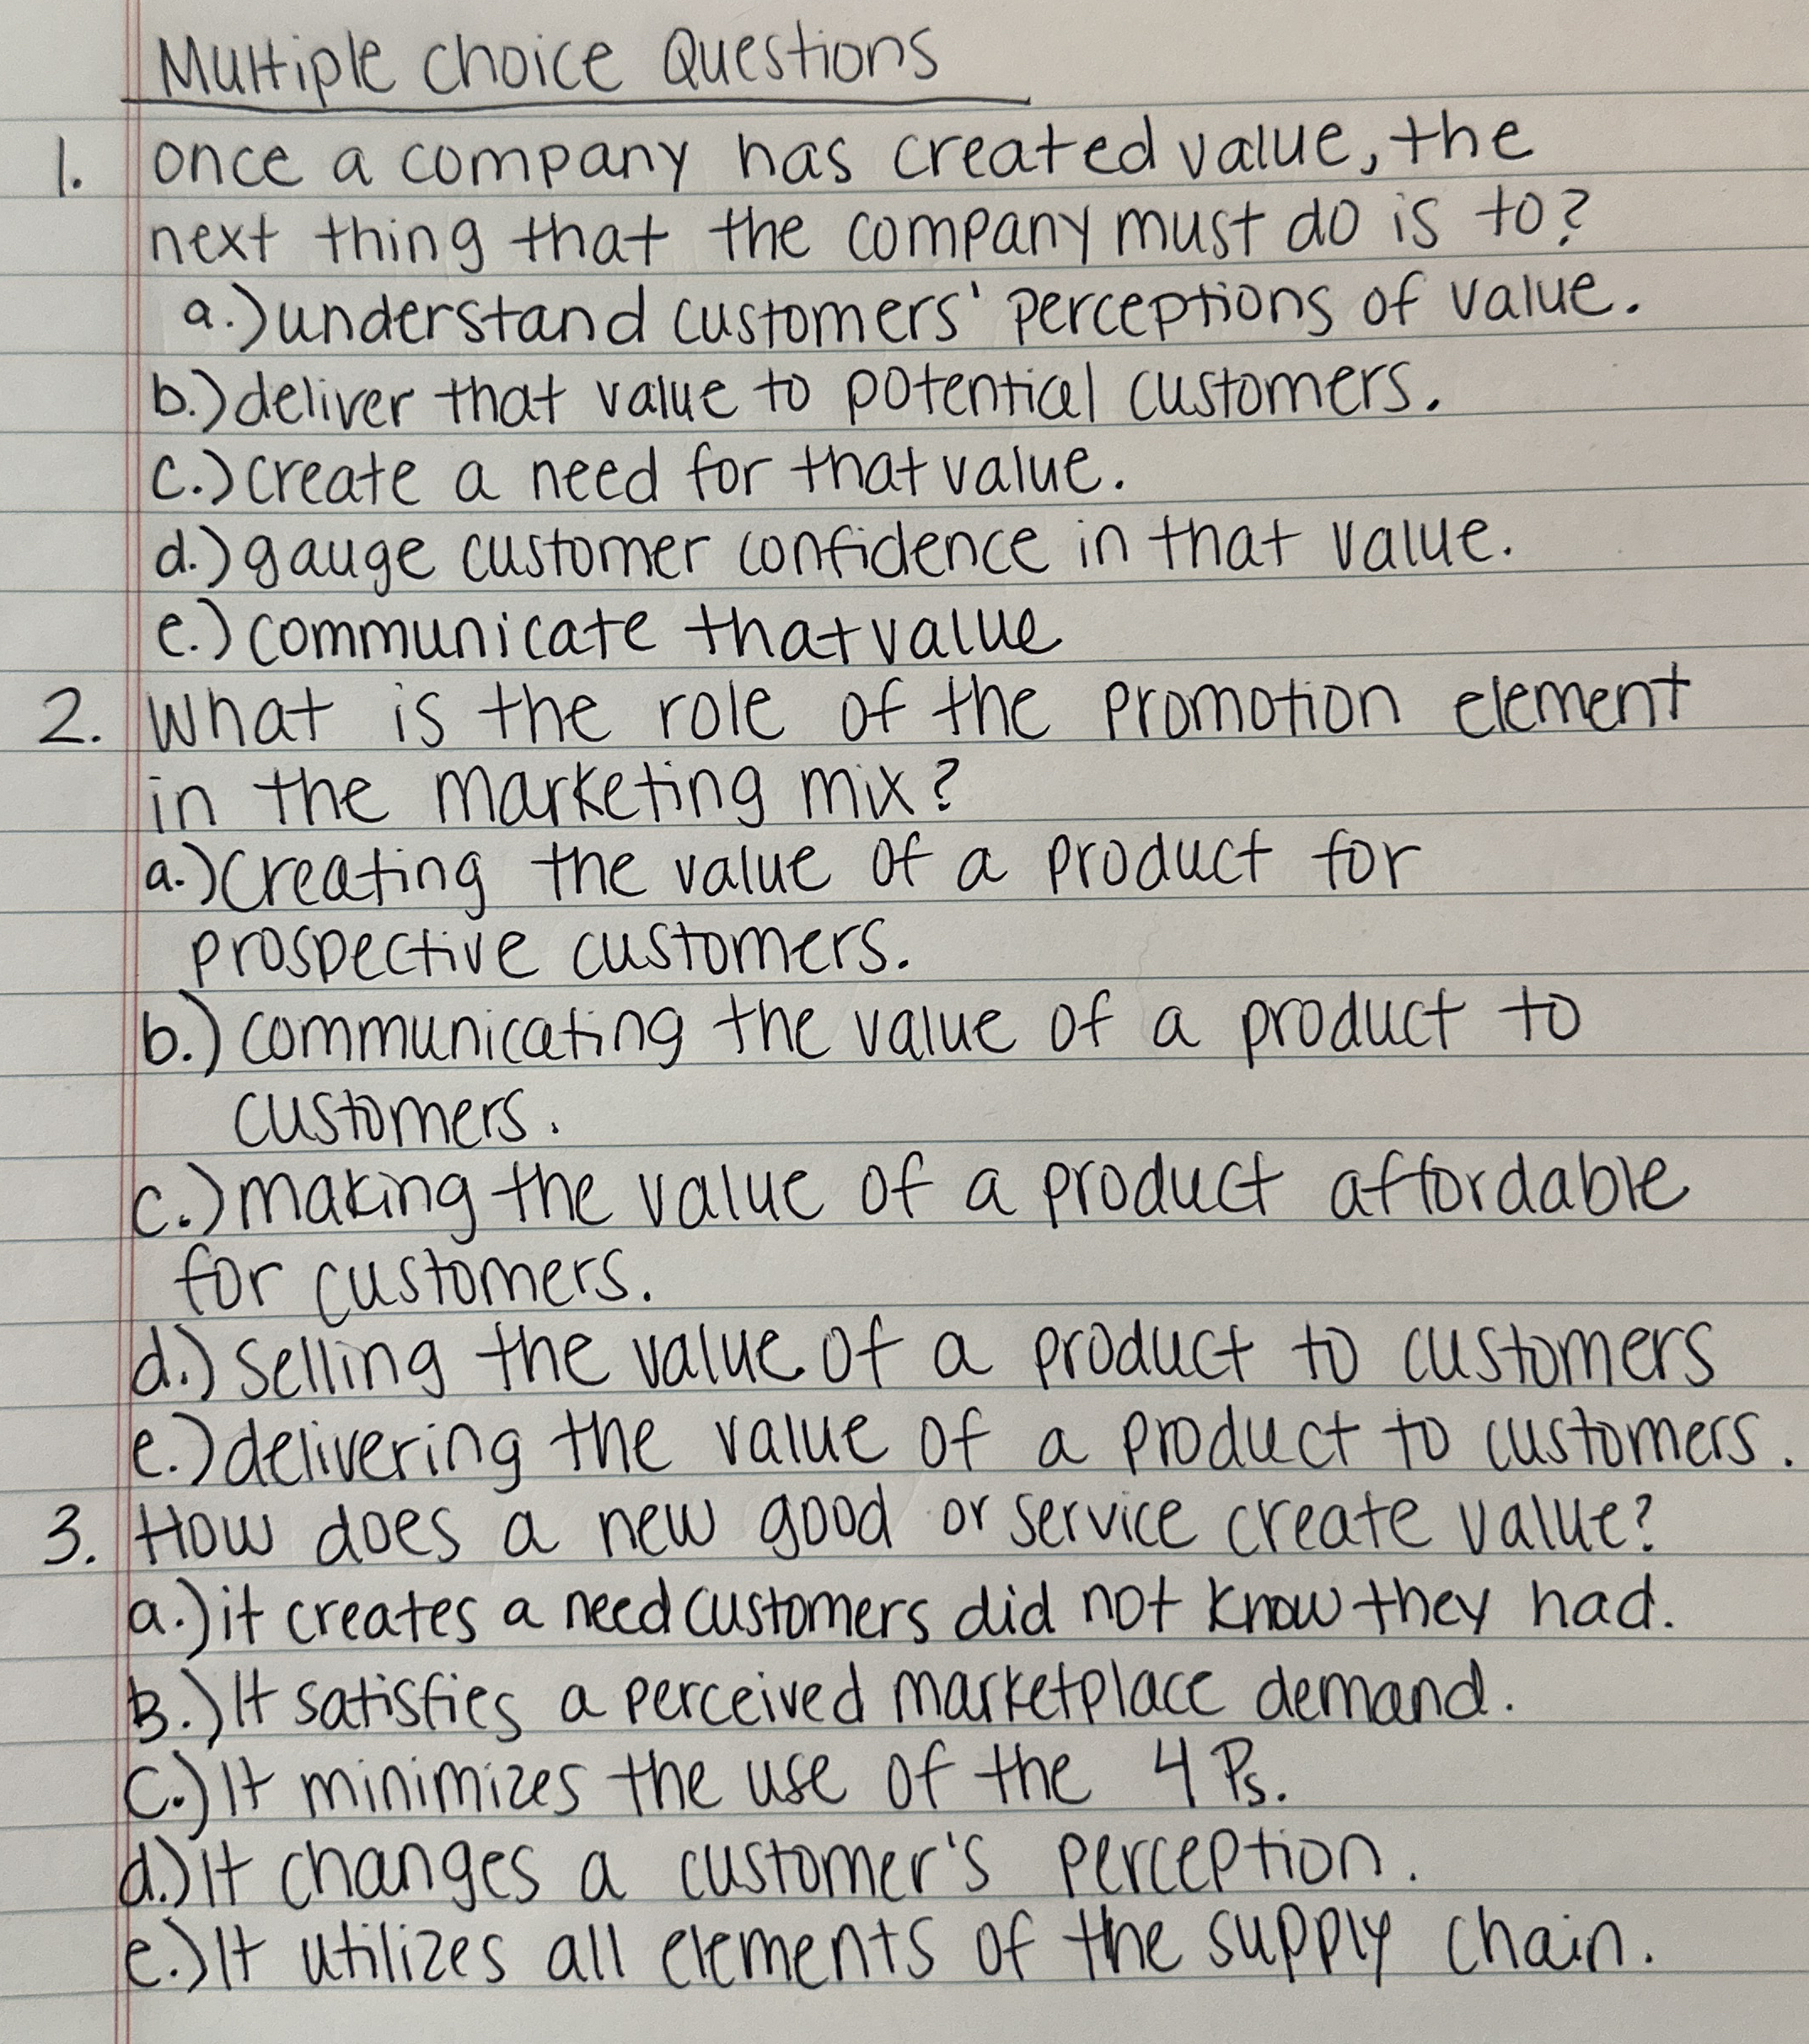 Multiple choice Questions
1. once a company has created value, the
next thing that the company must do is to?
a.) understand customers' perceptions of value.
b.) deliver that value to potential customers.
c.) create a need for that value.
d.) gauge customer confidence in that value.
e.) communicate that value
2. What is the role of the promotion element
in the marketing mix?
a.) creating the value of a product for
prospective customers.
b.) communicating the value of a product to
customers.
c.) making the value of a product affordable
for customers.
d.) selling the value of a product to customers
e.) delivering the value of a product to customers.
3. How does a new good or service create value?
a.) it creates a need customers did not know they had.
B.) It satisfies a perceived marketplace demand.
C.) It minimizes the use of the 4 Ps.
d.) it changes a customer's perception.
e.) It utilizes all elements of the supply chain.